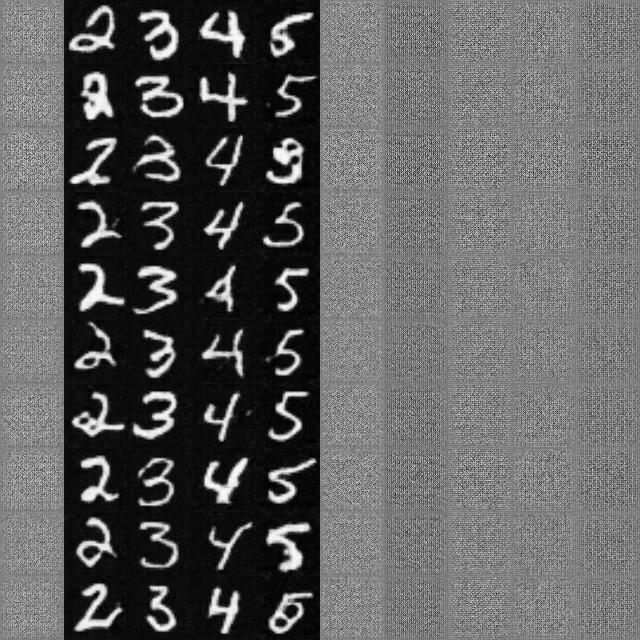 2 3 4 5
2 3 4 5
2 3 4
2 3 4 5
2 3 4 5
2 3 4 5
2 3 4 5
2 3 4 5
2 3 4 5
2 3 4 5